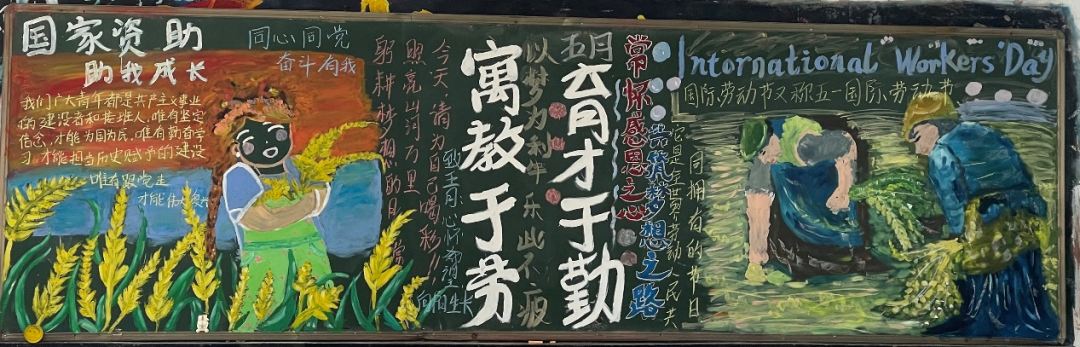 国家资助
助我成长
同心同党
奋斗有我
我们广大青年都是共产主义事业
的建设者和接班人,唯有坚定
信念,才能为国为民,唯有勤奋学
习,才能担当历史赋予的建设
唯有跟党走
才能
今天,请为自己喝彩!!
照亮山河万里
躬耕梦想的月
寓教于劳
以梦为 乐此不疲
五月
育才于勤
常怀感恩之心
共筑梦想之路
它是全世界劳动人民共
同拥有的节日
International Workers' Day
国际劳动节又称五一国际劳动节